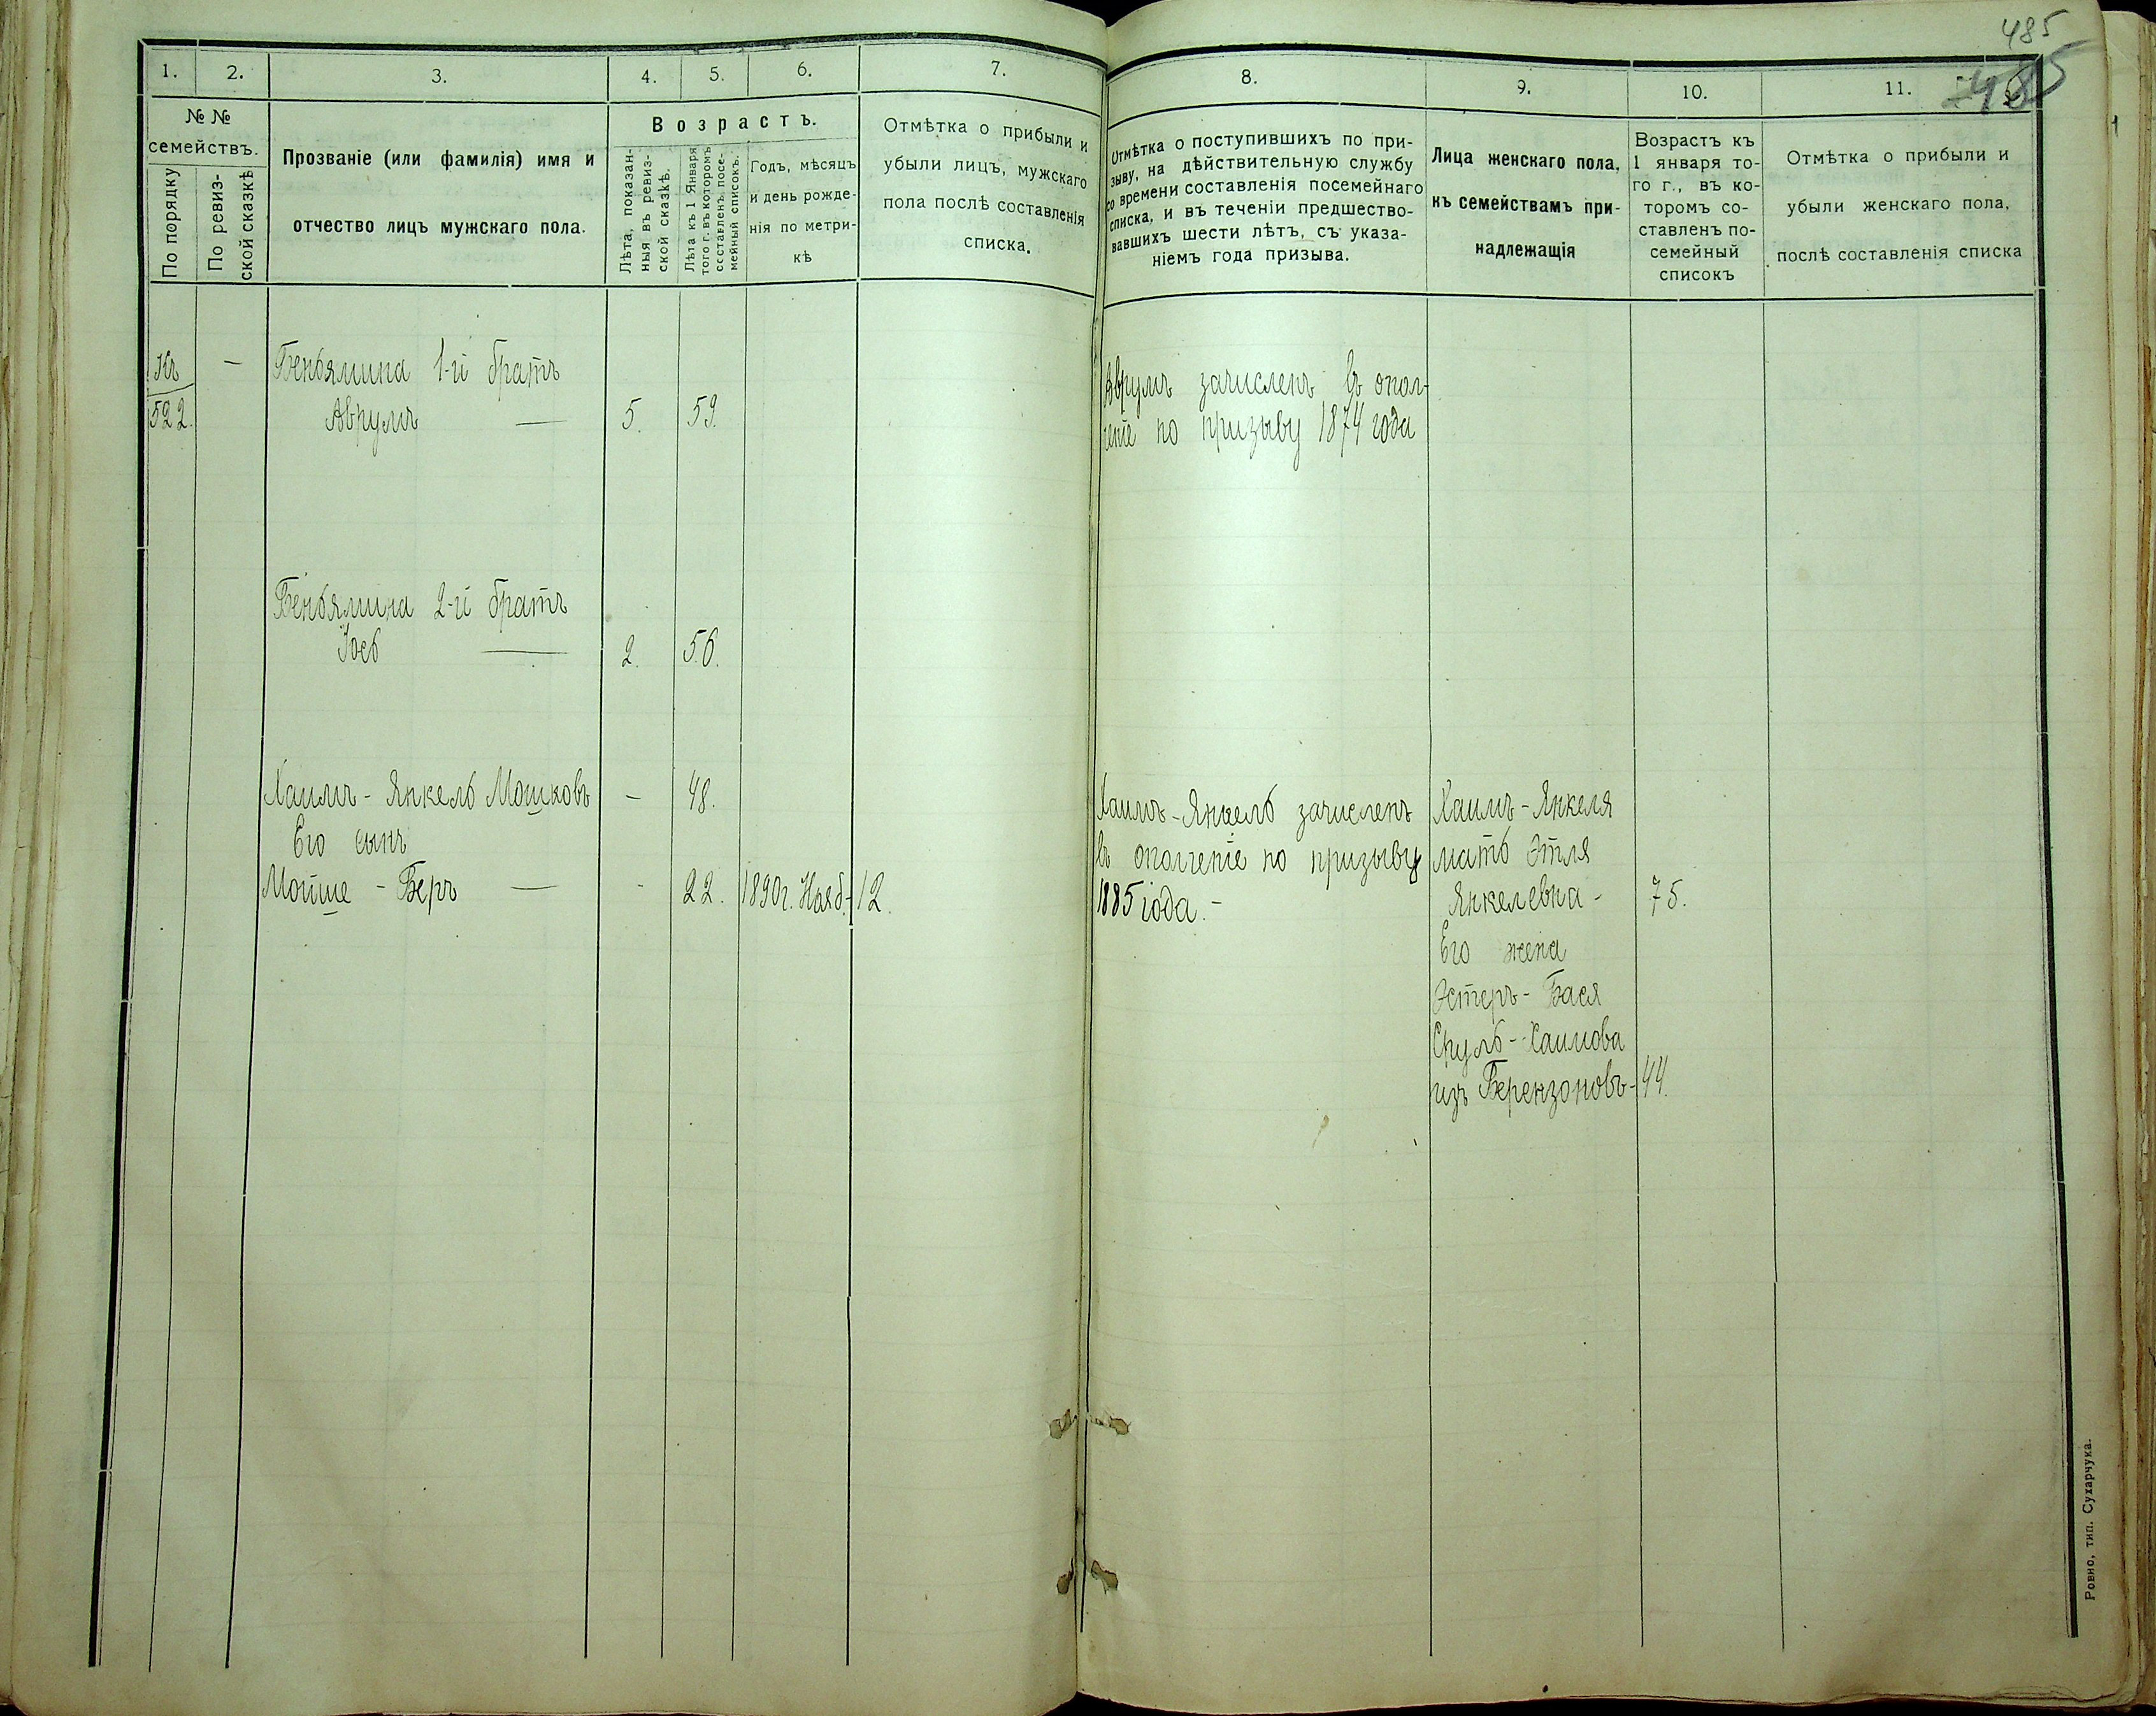 485
485
1.
2.
3.
4.
5.
6.
7.
№ №
семействъ.
По порядку
По ревиз-
ской сказкѣ
Прозваніе (или фамилія) имя и
отчество лицъ мужскаго пола.
Возрастъ.
Лѣта, показан-
ныя въ ревиз-
ской сказкѣ.
Лѣта къ 1 Января
того г. въ которомъ
составленъ посе-
мейный списокъ.
Годъ, мѣсяцъ
и день рожде-
нія по метри-
кѣ
Отмѣтка о прибыли и
убыли лицъ, мужскаго
пола послѣ составленія
списка.
Къ
522.
—
Беньямина 1-й братъ
Аврумъ — 5. 59.
Беньямина 2-й братъ
Іось — 2. 56.
Хаимъ-Янкель Мошковъ — 48.
Его сынъ
Мойше-Беръ — - 22. 1890г. Нояб.-12.
8.
9.
10.
11.
Отмѣтка о поступившихъ по при-
зыву, на дѣйствительную службу
со времени составленія посемейнаго
списка, и въ теченіи предшество-
вавшихъ шести лѣтъ, съ указа-
ніемъ года призыва.
Лица женскаго пола,
къ семействамъ при-
надлежащія
Возрастъ къ
1 января то-
го г., въ ко-
торомъ со-
ставленъ по-
семейный
списокъ
Отмѣтка о прибыли и
убыли женскаго пола,
послѣ составленія списка
Аврумъ зачисленъ въ опол-
ченіе по призыву 1874 года
Хаимъ-Янкель зачисленъ
въ ополченіе по призыву
1885 года.-
Хаимъ-Янкеля
мать Этля
Янкелевна - 75.
Его жена
Эстеръ-Бася
Сруль-Хаимова
изъ Берензоновъ - 44.
Ровно, тип. Сухарчука.